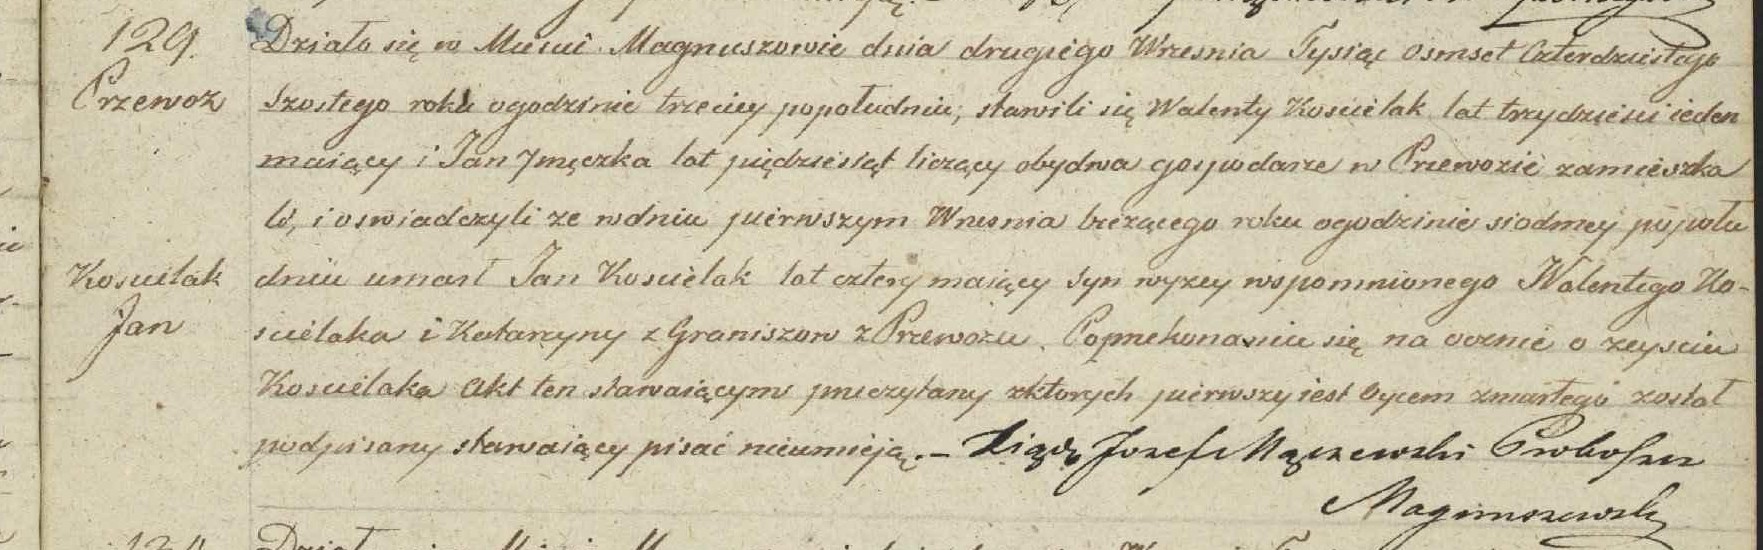 129.
Przewoz
Koscielak
Jan
Działo się w Miescie Magnuszewie dnia drugiego Wrzesnia Tysiąc osmset Czterdziestego
Szostego roku ogodzinie trzeciey popołudniu, stawili się Walenty Koscielak lat trzydziesci ieden
maiący i Jan Jmęczka lat piędziesiąt liczący obydwa gospodarze w Przewozie zamieszka
li, i oswiadczyli ze wdniu pierwszym Wrzesnia bieżącego roku ogodzinie siodmey popołu
dniu umarł Jan Koscielak lat cztery maiący syn wyzey wspomnionego Walentego Ko-
scielaka i Katarzyny z Graniszow z Przewozu. Poprzekonaniu się na ocznie o zeysciu
Koscielaka Akt ten stawaiącym przeczytany zktorych pierwszy iest Oycem zmarłego został
podpisany stawaiący pisać nieumieją. – Xiądz Jozef Mączewski Proboszcz
Magnuszewski
Działo